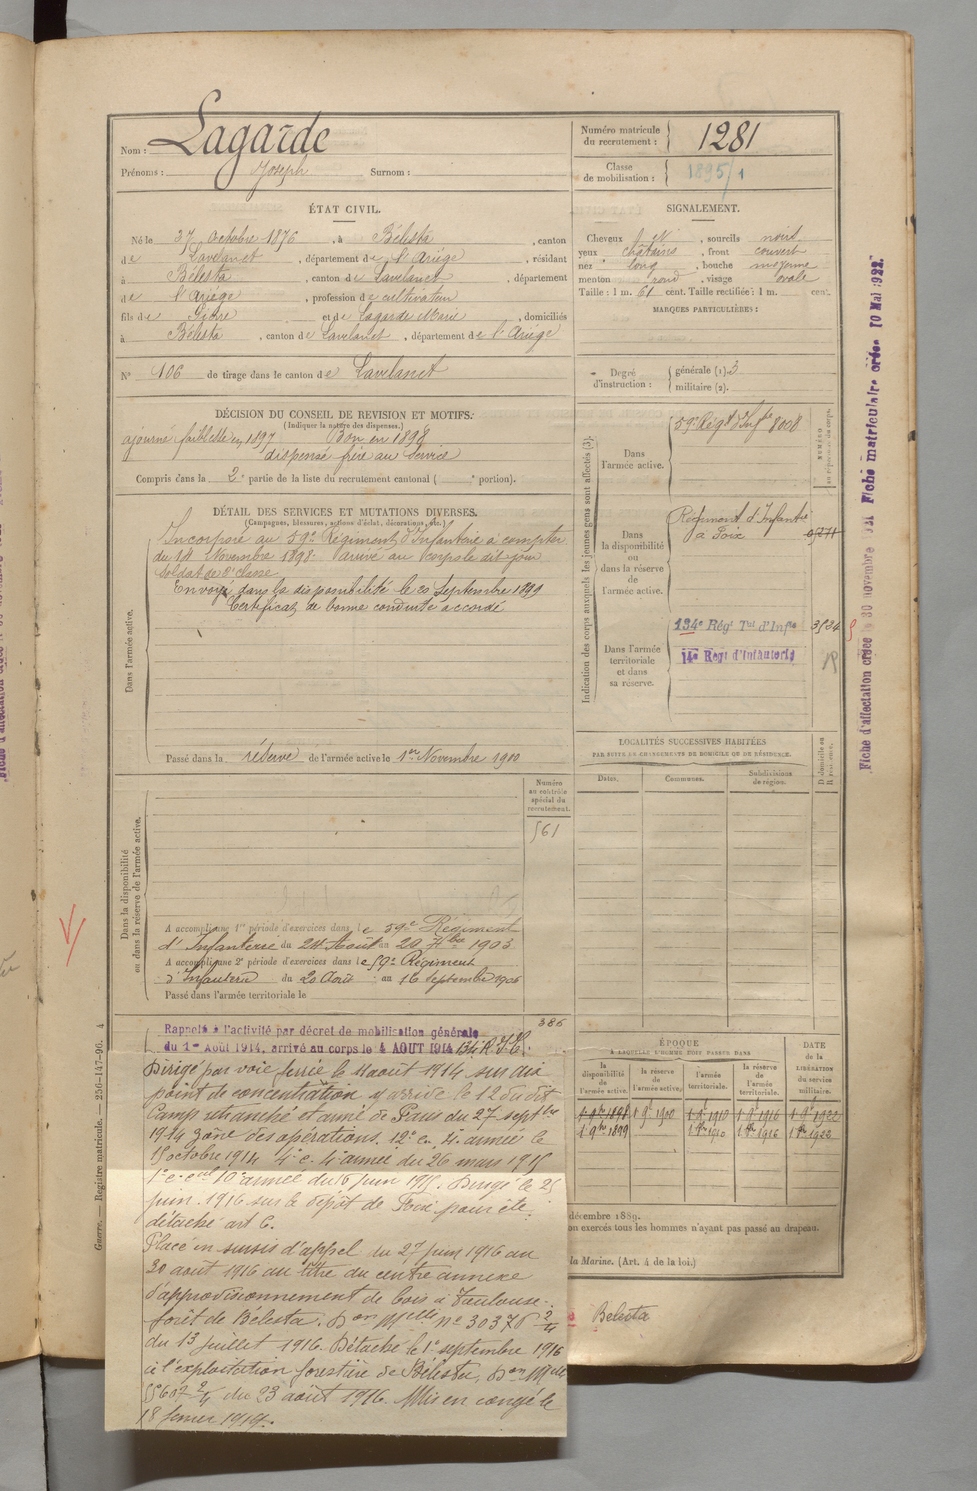 Nom : Lagarde
Prénoms : Joseph Surnom :
Numéro matricule du recrutement : 1281
Classe de mobilisation : 1895/1
ÉTAT CIVIL.
Né le 27 Octobre 1876, à Bélesta, canton
de Lavelanet, département de l'Ariége, résidant
à Bélesta, canton de Lavelanet, département
de l'Ariége, profession de cultivateur
fils de et de Lagarde Marie, domiciliés
à Bélesta, canton de Lavelanet, département de l'Ariége
N° 106 de tirage dans le canton de Lavelanet
SIGNALEMENT.
Cheveux, sourcils noirs
yeux chatains, front couvert
nez long, bouche moyenne
menton rond, visage ovale
Taille : 1 m. 61 cent. Taille rectifiée : 1 m. cent.
MARQUES PARTICULIÈRES :
Degré d'instruction : générale (1). 3
militaire (2).
DÉCISION DU CONSEIL DE REVISION ET MOTIFS.
(Indiquer la nature des dispenses.)
ajourné faiblesse en 1897 Bon en 1898
dispensé frère au service
Compris dans la 2e partie de la liste du recrutement cantonal ( e portion).
DÉTAIL DES SERVICES ET MUTATIONS DIVERSES.
(Campagnes, blessures, actions d'éclat, décorations, etc.)
Dans l'armée active.
Incorporé au 59e Régiment d'Infanterie à compter
du 14 Novembre 1898. Arrivé au corps le dit jour
soldat de 2e classe
Envoyé dans la disponibilité le 20 Septembre 1899
Certificat de bonne conduite accordé
Passé dans la réserve de l'armée active le 1er Novembre 1900
Indication des corps auxquels les jeunes gens sont affectés (3).
NUMÉRO au répertoire du corps.
Dans l'armée active. 59e Régt d'Infie 8008
Dans la disponibilité ou dans la réserve de l'armée active.
Régiment d'Infantie
à Foix
Dans l'armée territoriale et dans sa réserve.
134e Régt Tal d'Infie 3524
14e Régt d'Infanterie
LOCALITÉS SUCCESSIVES HABITÉES
PAR SUITE DE CHANGEMENTS DE DOMICILE OU DE RÉSIDENCE.
Dates. Communes. Subdivisions de région. D. domicile ou R. résidence.
Dans la disponibilité ou dans la réserve de l'armée active.
Numéro au contrôle spécial du recrutement.
561
A accompli une 1re période d'exercices dans le 59e Régiment
d'Infanterie du 24 Août au 20 7bre 1903
A accompli une 2e période d'exercices dans le 59e Régiment
d'Infanterie du 20 Août au 16 Septembre 1906
Passé dans l'armée territoriale le
386
Rappelé à l'activité par décret de mobilisation générale
du 1er Août 1914, arrivé au corps le 4 AOUT 1914 134 R.I.T.
Dirigé par voie ferrée le 11 août 1914 sur son
point de concentration y arrivé le 12 du dit
Camp retranché et armée de Paris du 27 septbre
1914 zône des opérations. 12e c. 4e armée le
15 octobre 1914 4e c. 4e armée du 26 mars 1915
1er c. col 10e armée du 6 juin 1915. Dirigé le 25
juin 1916 sur le dépôt de Foix pour être
détaché art 6.
Placé en sursis d'appel du 27 juin 1916 au
30 août 1916 au titre du centre annexe
d'approvisionnement de bois à Toulouse.
forêt de Bélesta. Don Mlle n° 30376 2/4
du 13 juillet 1916. Détaché le 1er septembre 1916
à l'exploitation forestière de Bélesta. Don Mlle
55607 2/4 du 23 août 1916. Mis en congé le
18 février 1919.
ÉPOQUE
À LAQUELLE L'HOMME DOIT PASSER DANS
la disponibilité de l'armée active. la réserve de l'armée active. l'armée territoriale. la réserve de l'armée territoriale.
DATE de la LIBÉRATION du service militaire.
1 9bre 1898 1 9bre 1900 1 9bre 1910 1 9bre 1916 1 9bre 1922
1 9bre 1899 1 8bre 1910 1 8bre 1916 1 8bre 1922
décembre 1889.
on exercés tous les hommes n'ayant pas passé au drapeau.
la Marine. (Art. 4 de la loi.)
Bélesta
Guerre. — Registre matricule. — 256-147-96. 4
Fiche d'affectation créée le 30 novembre 1931 Fiche matriculaire créée 10 Mai 1922.